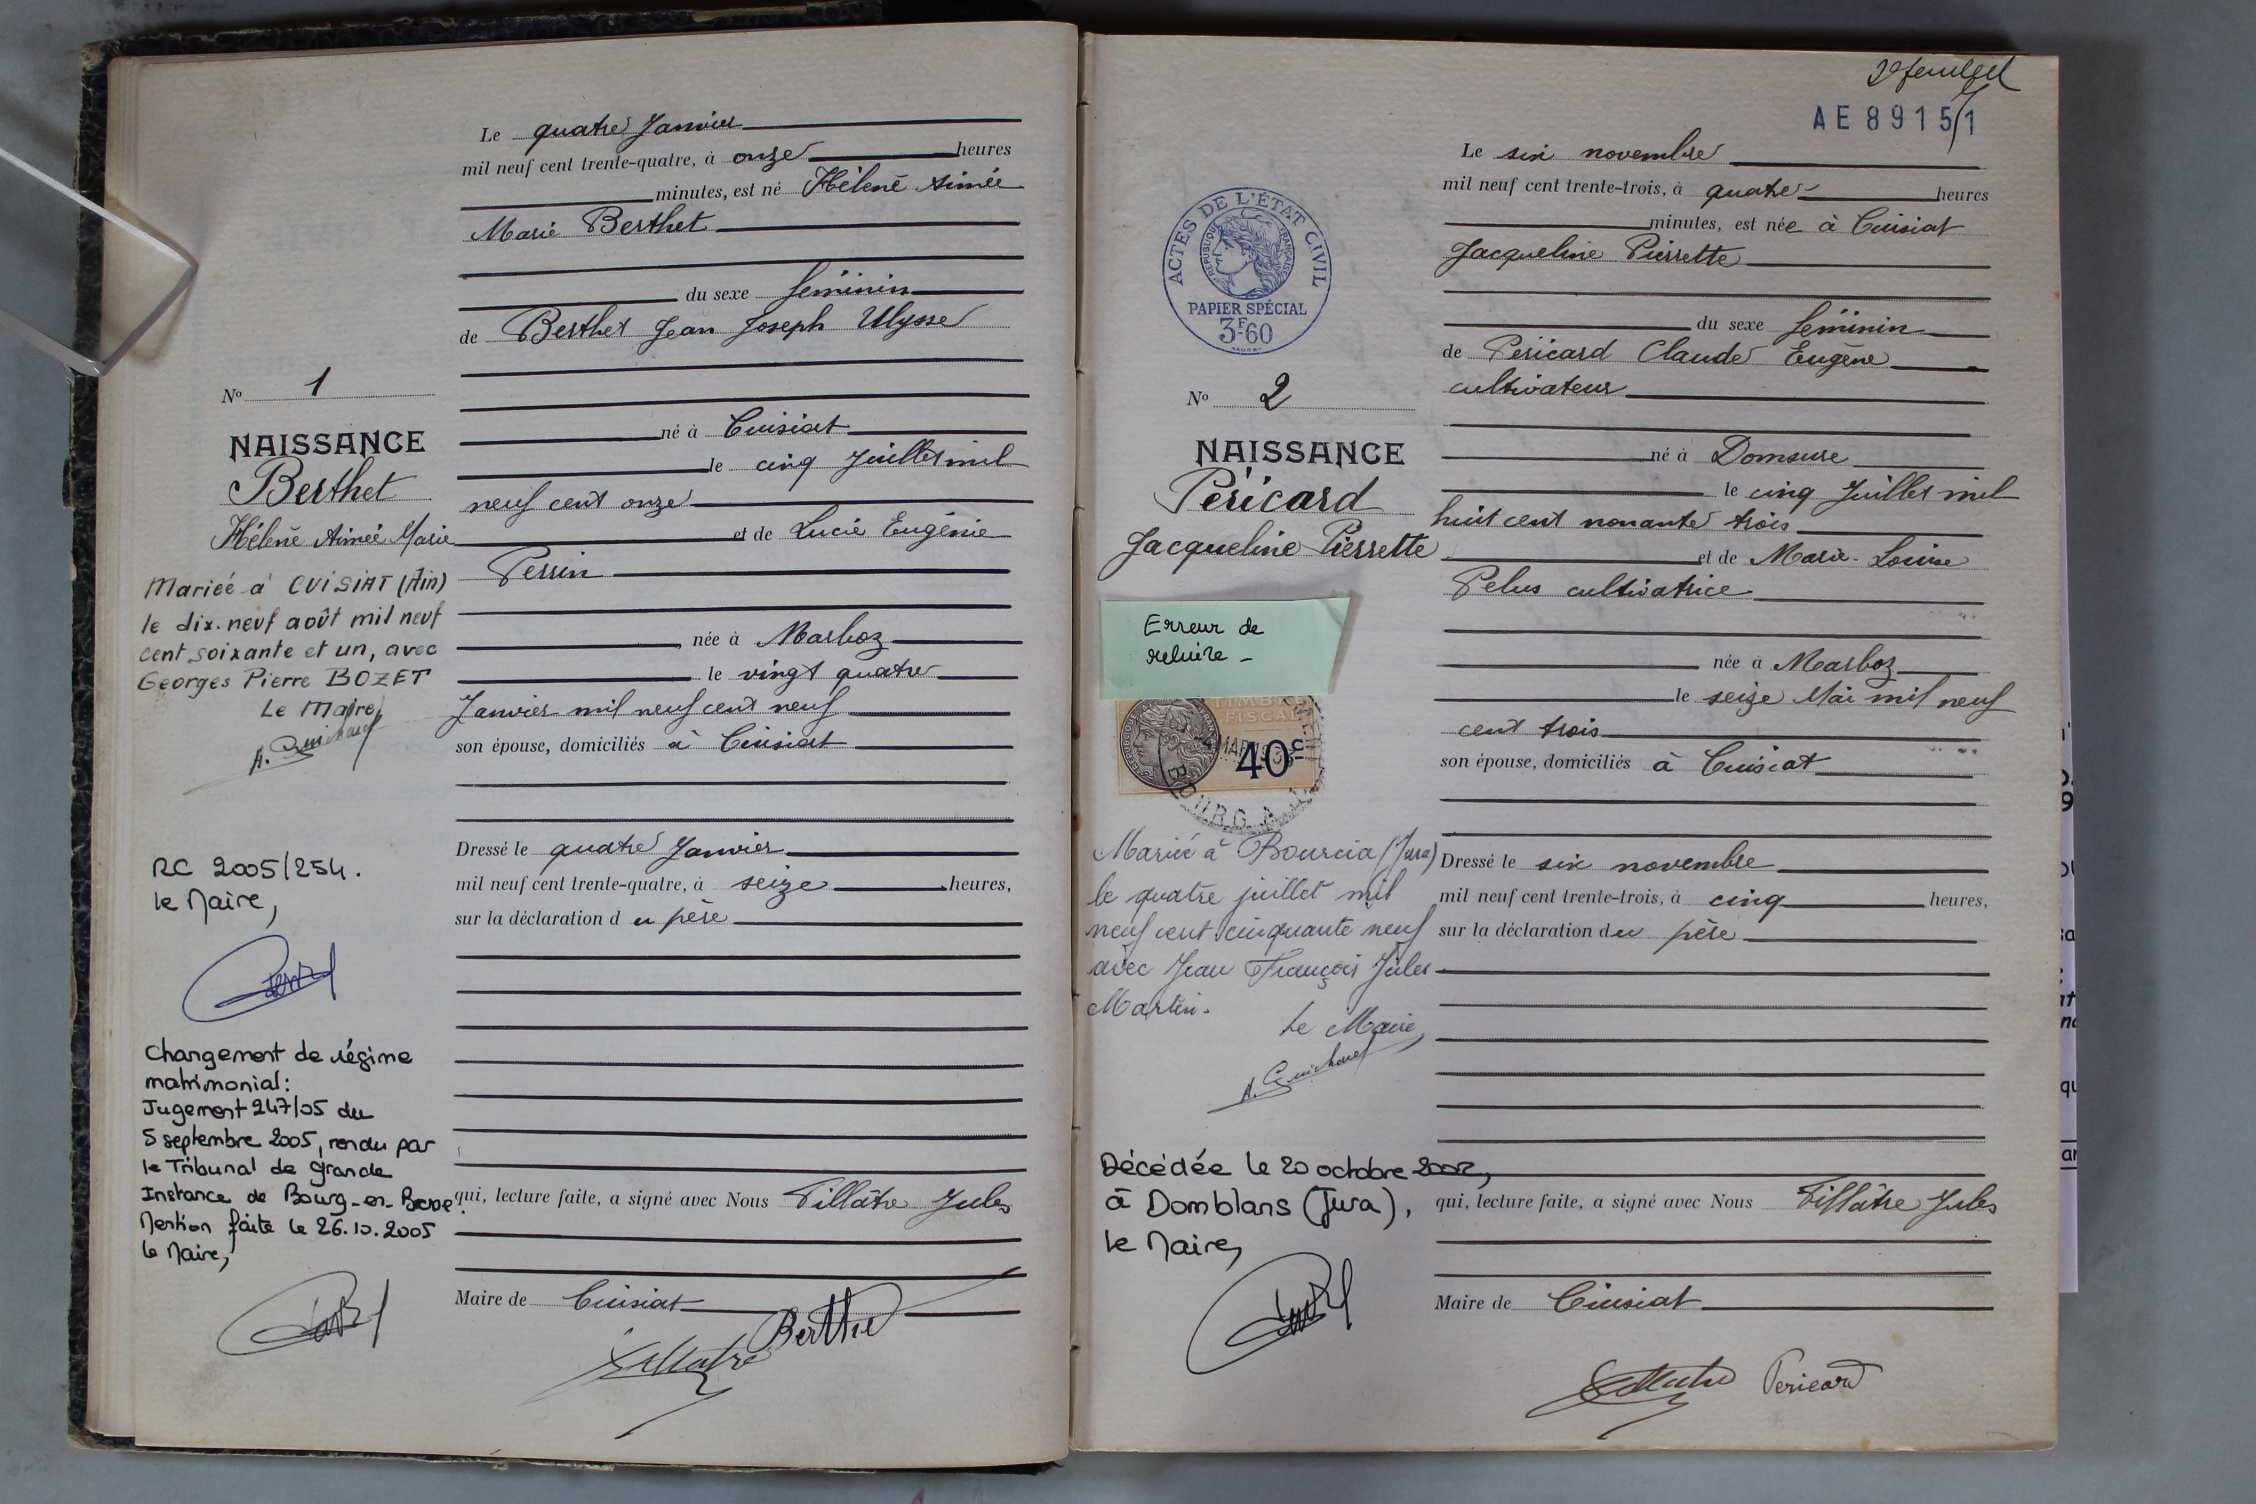 Le quatre Janvier
mil neuf cent trente-quatre, à onze heures
minutes, est né Hélène Aimée
Marie Berthet
du sexe féminin
de Berthet Jean Joseph Ulysse
né à Cuisiat
le cinq Juillet mil
neuf cent onze
et de Lucie Eugénie
Perrin
née à Marboz
le vingt quatre
Janvier mil neuf cent neuf
son épouse, domiciliés à Cuisiat
Dressé le quatre Janvier
mil neuf cent trente-quatre, à seize heures,
sur la déclaration du père
qui, lecture faite, a signé avec Nous Fillâtre Jules
Maire de Cuisiat
Berthet
Fillatre
No 1
NAISSANCE
Berthet
Hélène Aimée Marie
Mariée à CUISIAT (Ain)
le dix-neuf août mil neuf
cent soixante et un, avec
Georges Pierre BOZET
Le Maire
RC 2005/254.
le Maire,
Changement de régime
matrimonial:
Jugement 247/05 du
5 septembre 2005, rendu par
le Tribunal de Grande
Instance de Bourg-en-Bresse.
Mention faite le 26.10.2005
le Maire,
2e feuillet
AE 89151
Le six novembre
mil neuf cent trente-trois, à quatre heures
minutes, est née à Cuisiat
Jacqueline Pierrette
du sexe féminin
de Péricard Claude Eugène
cultivateur
né à Domsure
le cinq Juillet mil
huit cent nonante trois
et de Marie-Louise
Pelus cultivatrice
née à Marboz
le seize Mai mil neuf
cent trois
son épouse, domiciliés à Cuisiat
Dressé le six novembre
mil neuf cent trente-trois, à cinq heures,
sur la déclaration du père
qui, lecture faite, a signé avec Nous Fillâtre Jules
Maire de Cuisiat
Fillatre Pericard
ACTES DE L'ÉTAT CIVIL
RÉPUBLIQUE FRANÇAISE
PAPIER SPÉCIAL
3F-60
No 2
NAISSANCE
Péricard
Jacqueline Pierrette
Erreur de
reliure -
TIMBRE
FISCAL
40c
BOURG
Mariée à Bourcia (Jura)
le quatre juillet mil
neuf cent cinquante neuf
avec Jean François Jules
Martin.
Le Maire,
Décédée le 20 octobre 2002,
à Domblans (Jura),
le Maire,